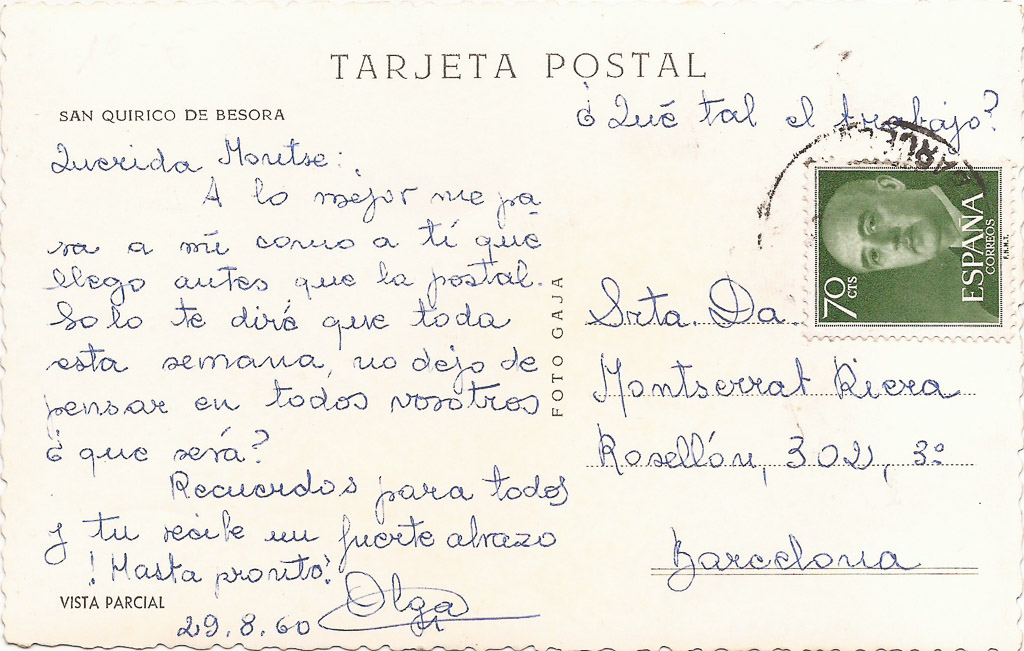 TARJETA POSTAL
SAN QUIRICO DE BESORA
¿Qué tal el trabajo?
Querida Montse:
A lo mejor me pa
sa a mí como a tí que
llego antes que la postal.
Solo te diré que toda
esta semana, no dejo de
pensar en todos vosotros
¿que será?
Recuerdos para todos
y tu recibe un fuerte abrazo
¡Hasta pronto!
Olga
VISTA PARCIAL
29.8.60
FOTO GAJA
70 CTS
ESPAÑA
CORREOS
F.N.M.T.
Srta. Da.
Montserrat Riera
Rosellón, 302, 3º
Barcelona